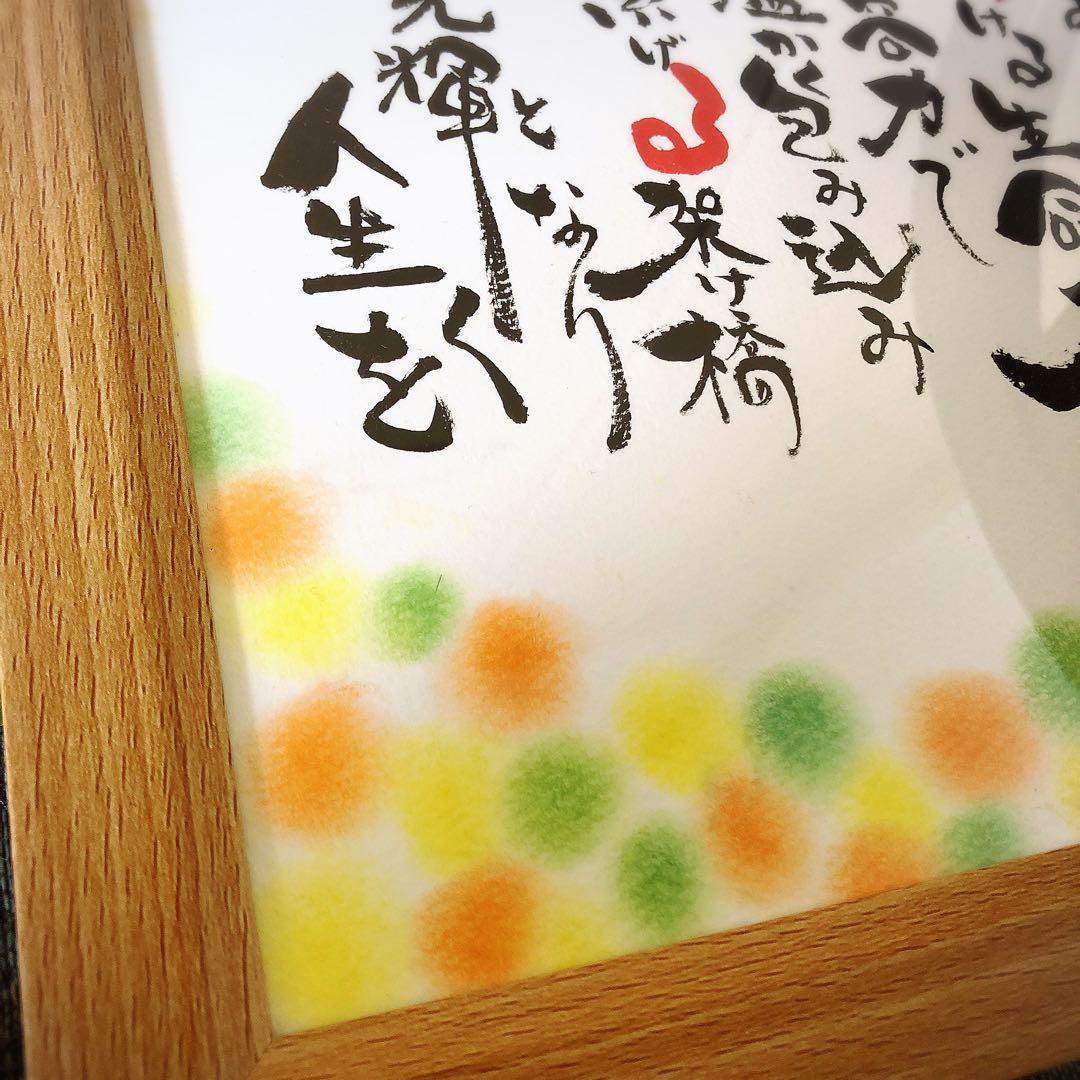 ける生
容力で
温かく包み込み
げる架け橋
となり
光輝く
人生を